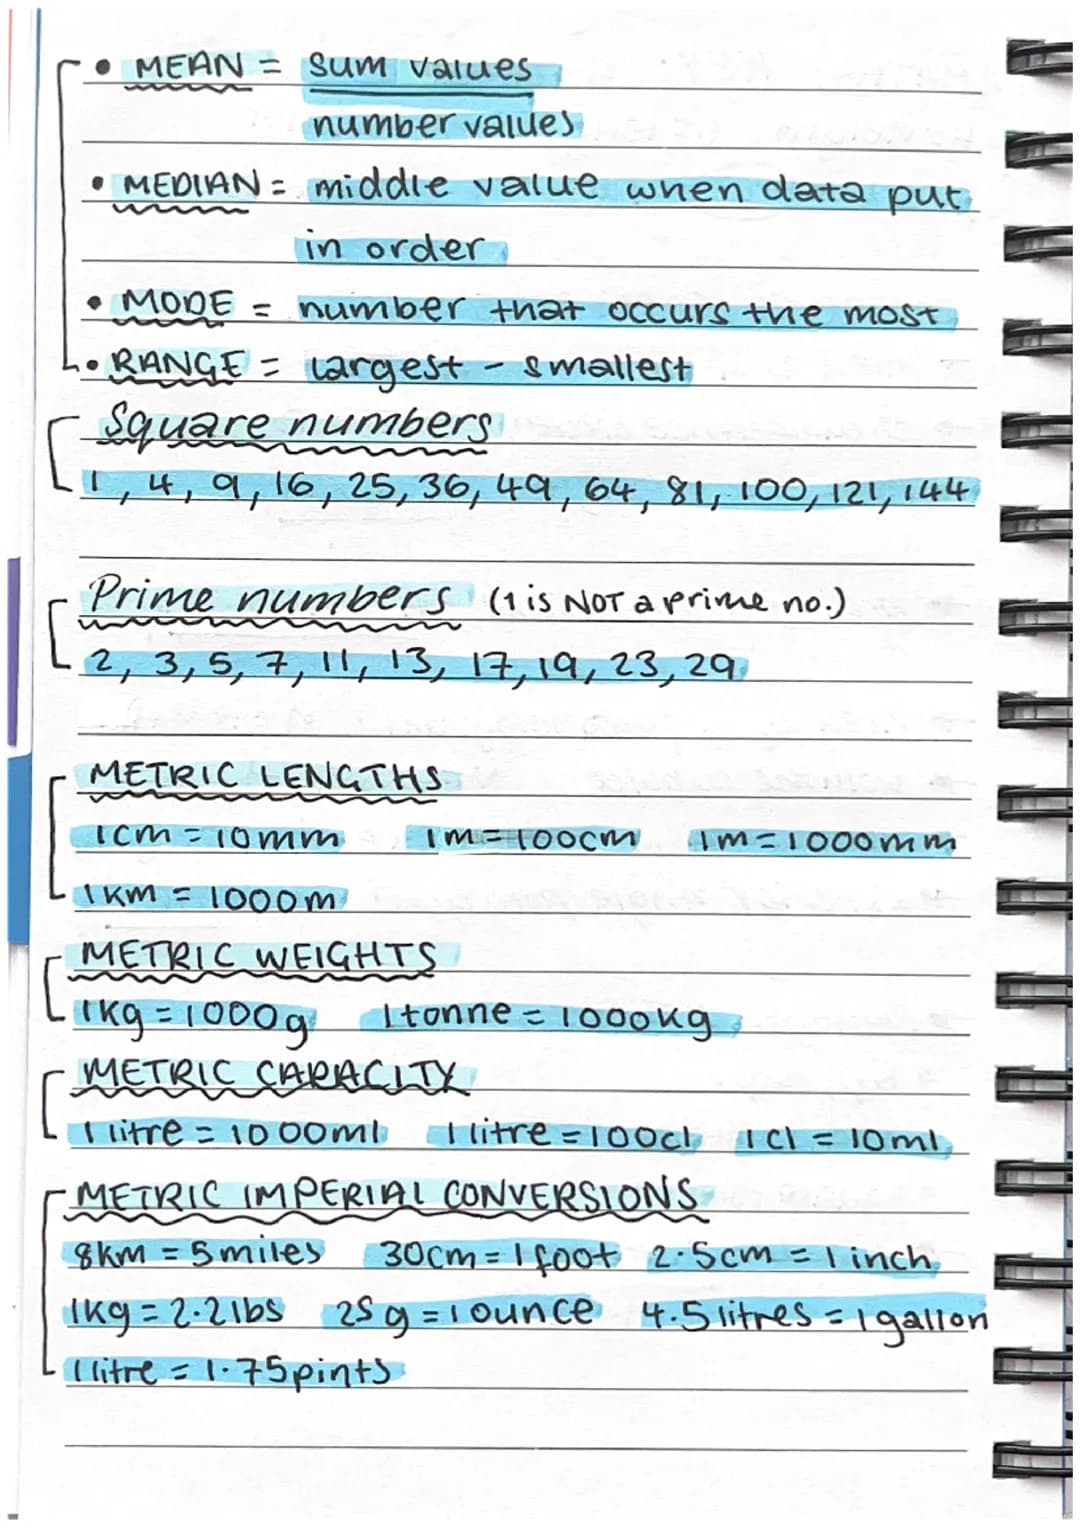 • MEAN = sum values
number values
• MEDIAN = middle value when data put
in order
• MODE = number that occurs the most
• RANGE = largest - smallest
Square numbers
1, 4, 9, 16, 25, 36, 49, 64, 81, 100, 121, 144
Prime numbers (1 is NOT a prime no.)
2, 3, 5, 7, 11, 13, 17, 19, 23, 29
METRIC LENGTHS
1cm = 10mm 1m = 100cm 1m = 1000mm
1km = 1000m
METRIC WEIGHTS
1kg = 1000g 1 tonne = 1000kg
METRIC CAPACITY
1 litre = 1000ml 1 litre = 100cl 1cl = 10ml
METRIC IMPERIAL CONVERSIONS
8km = 5 miles 30cm = 1 foot 2.5cm = 1 inch
1kg = 2.2lbs 25g = 1 ounce 4.5 litres = 1 gallon
1 litre = 1.75 pints